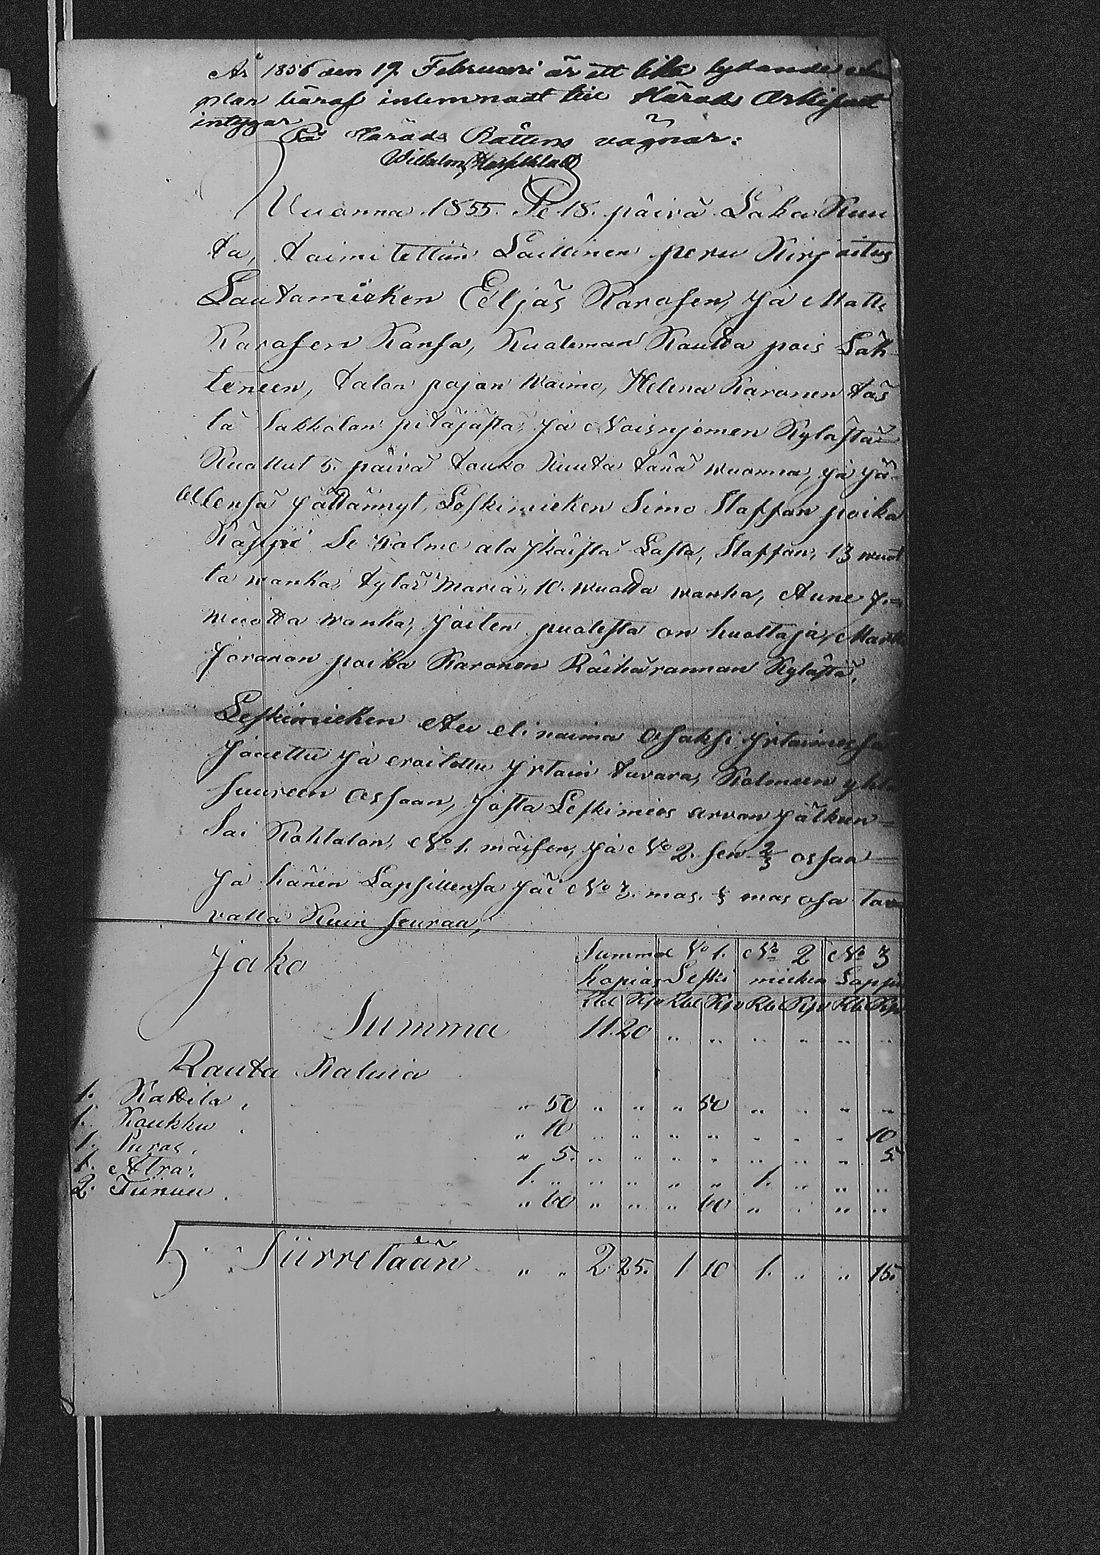 År 1856 den 19 Februari är ett lika lydande exem
plar häraf inlemnadt till Härads Arkifvet
intygar
På Härads Rättens vägnar:
Wilhelm
Vuonna 1855. Se 18. päivä Loka Kuu
ta, toimitettiin Laillinen peru Kirjoitus
Lautamiehen Eljas Karosen, ja Matti
Karosen Kansa, Kualeman Kautta pois Läh
teneen, talon pojan Waimo, Helena Karonen täs
tä Sakkolan pitäjästä ja Noisnjemen Kylästä
Kuollut 5. päivä touko Kuuta tänä wuonna, ja jä
llensä jättännyt Leskimiehen Simo Staffan poika
Käppi Se Kalme ala jkäistä Lasta, Staffan, 13 wuot
ta wanha, tytär Maria, 10. wuotta wanha, Aune 7.
wuotta wanha, joiten puolesta on huoltaja, Matti
Joranan poika Karonen Räihärannan Kylästä,
Leskimiehen Au eli naima Osaksi jrtaimessa
jaettu ja eroitettu jrtain tavara, Kolmeen yhtä
suureen ossaan, josta Leskimies arvan jälkeen
sai Kohtalon, No 1. mäisen, ja No 2. sen 2/3 ossan
ja hänen Lapsillensa jäi No 3. mas. 1/3 mas osa tava
valla Kuin seuraa,
Jako Summa No 1. No 2 No 3
hopias Leski miehen Lapsi
Rbl Kp Rbl Kp Rbl Kp Rbl Kp
Summa 11. 20 " " " " " "
Rauta Kaluia
1. Kattila, " 50 " " " 50 " " " "
1. Koukku " 10 " " " " " " " 10
1. Puras, " 5. " " " " " " " 5
1. Atra, 1. " " " " " 1. " " "
2. Tiinua " 60 " " " 60 " " " "
5 Siirretään " " 2 25. 1 10 1. " " 15.